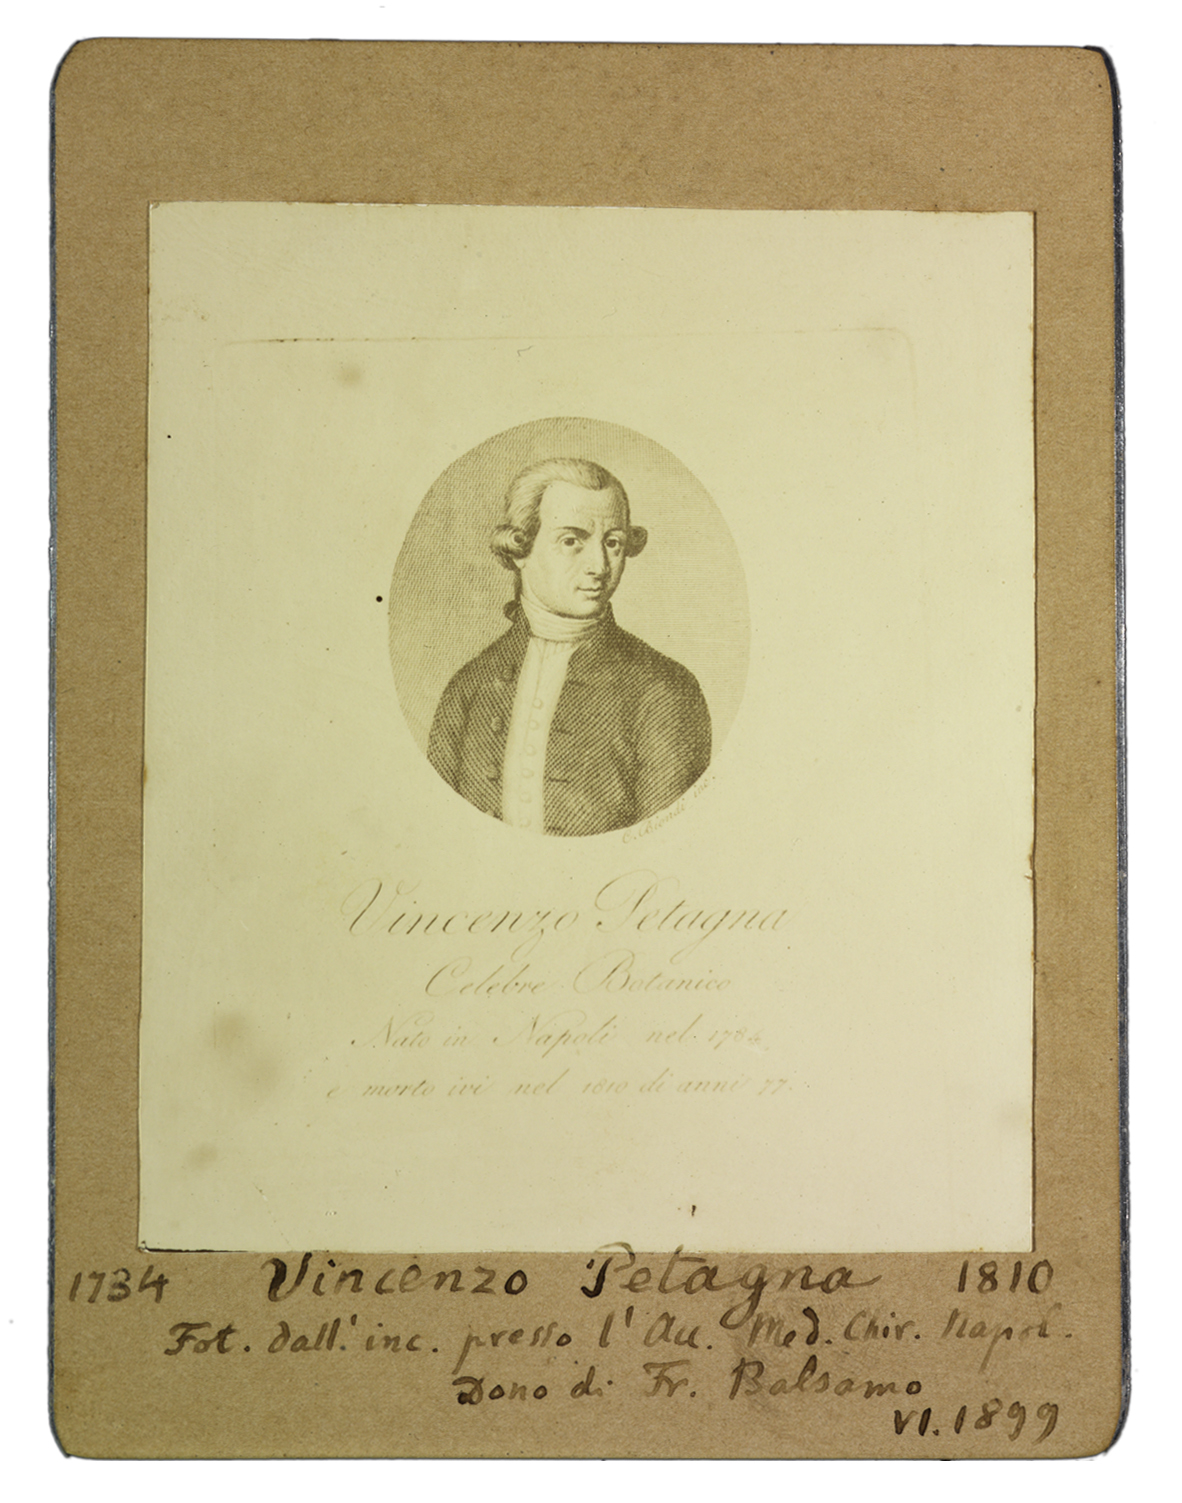 C. Biondi inc.
Vincenzo Petagna
Celebre Botanico
Nato in Napoli nel
e morto ivi nel 1810 di anni 77.
1734 Vincenzo Petagna 1810
Fot. dall' inc. presso l' Acc. Med. Chir. Napol.
Dono di Fr. Balsamo
VI. 1899